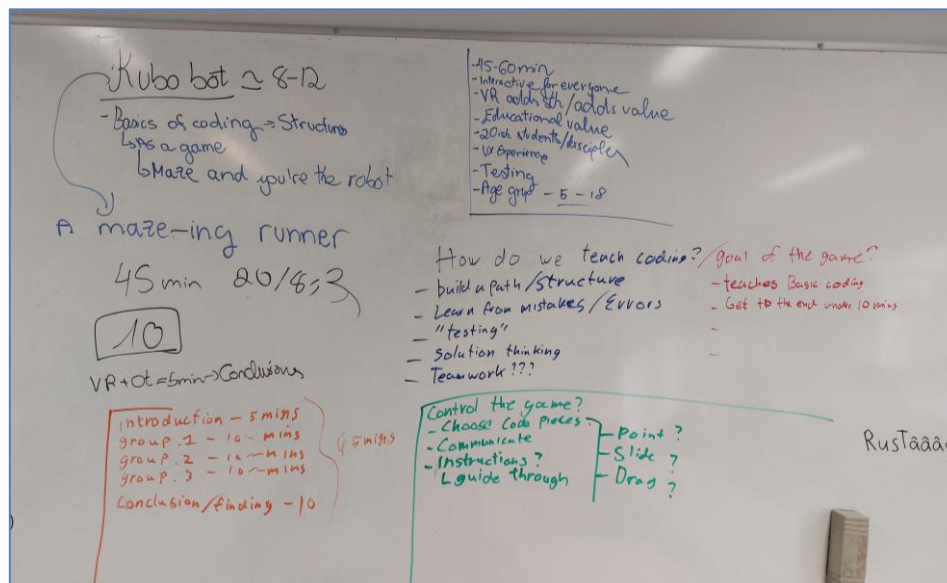 Kubo bot ≃ 8-12
- Basics of coding → Structures
↳ As a game
↳ Maze and you're the robot
A maze-ing runner
45 min 20/8;3
10
VR + Ot = 5min → Conclusions
introduction - 5 mins
group.1 - 10 ~ mins
group.2 - 10 ~ mins
group.3 - 10 ~ mins
Conclusion/finding - 10
45 mins
- 45-60min
- Interactive for everyone
- VR adds sth/adds value
- Educational value
- 20ich students/disciples
- VR Experience
- Testing
- Age group - 5 - 18
How do we teach coding?
- build a path/structure
- Learn from mistakes/Errors
- "testing"
- Solution thinking
- Teamwork???
/goal of the game?
- teaches Basic coding
- Get to the end under 10 mins
-
-
Control the game?
- Choose Code pieces
- Communicate
- Instructions?
↳ guide through
- Point?
- Slide?
- Drag?
RusTåååå